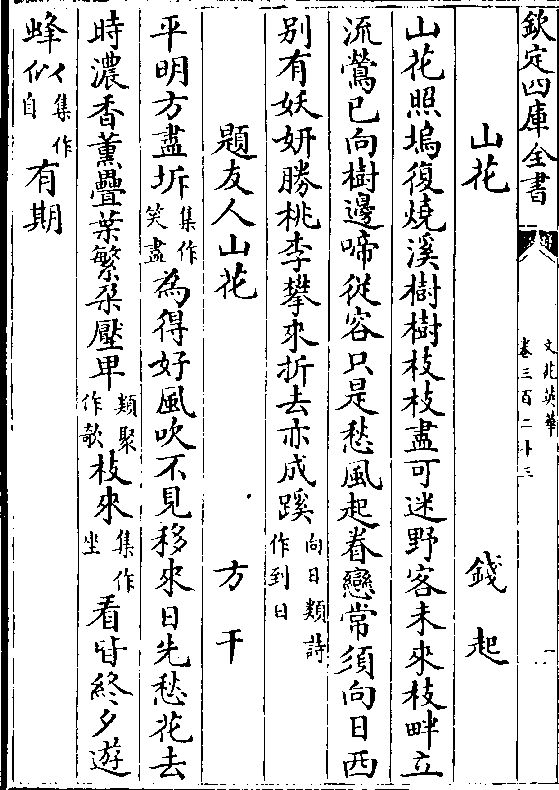 欽定四庫全書 文苑英華 卷三百二十三
山花 錢起
山花照塢復燒溪樹樹枝枝盡可迷野客未來枝畔立
流鶯已向樹邊啼從容只是愁風起眷戀常須向日西
别有妖妍勝桃李攀來折去亦成蹊向日類詩作到日
題友人山花 方干
平明方盡坼集作笑盡為得好風吹不見移來日先愁花去
時濃香薰疊葉繁朶壓卑類聚作欹枝來集作坐看皆終夕遊
蜂似集作自有期